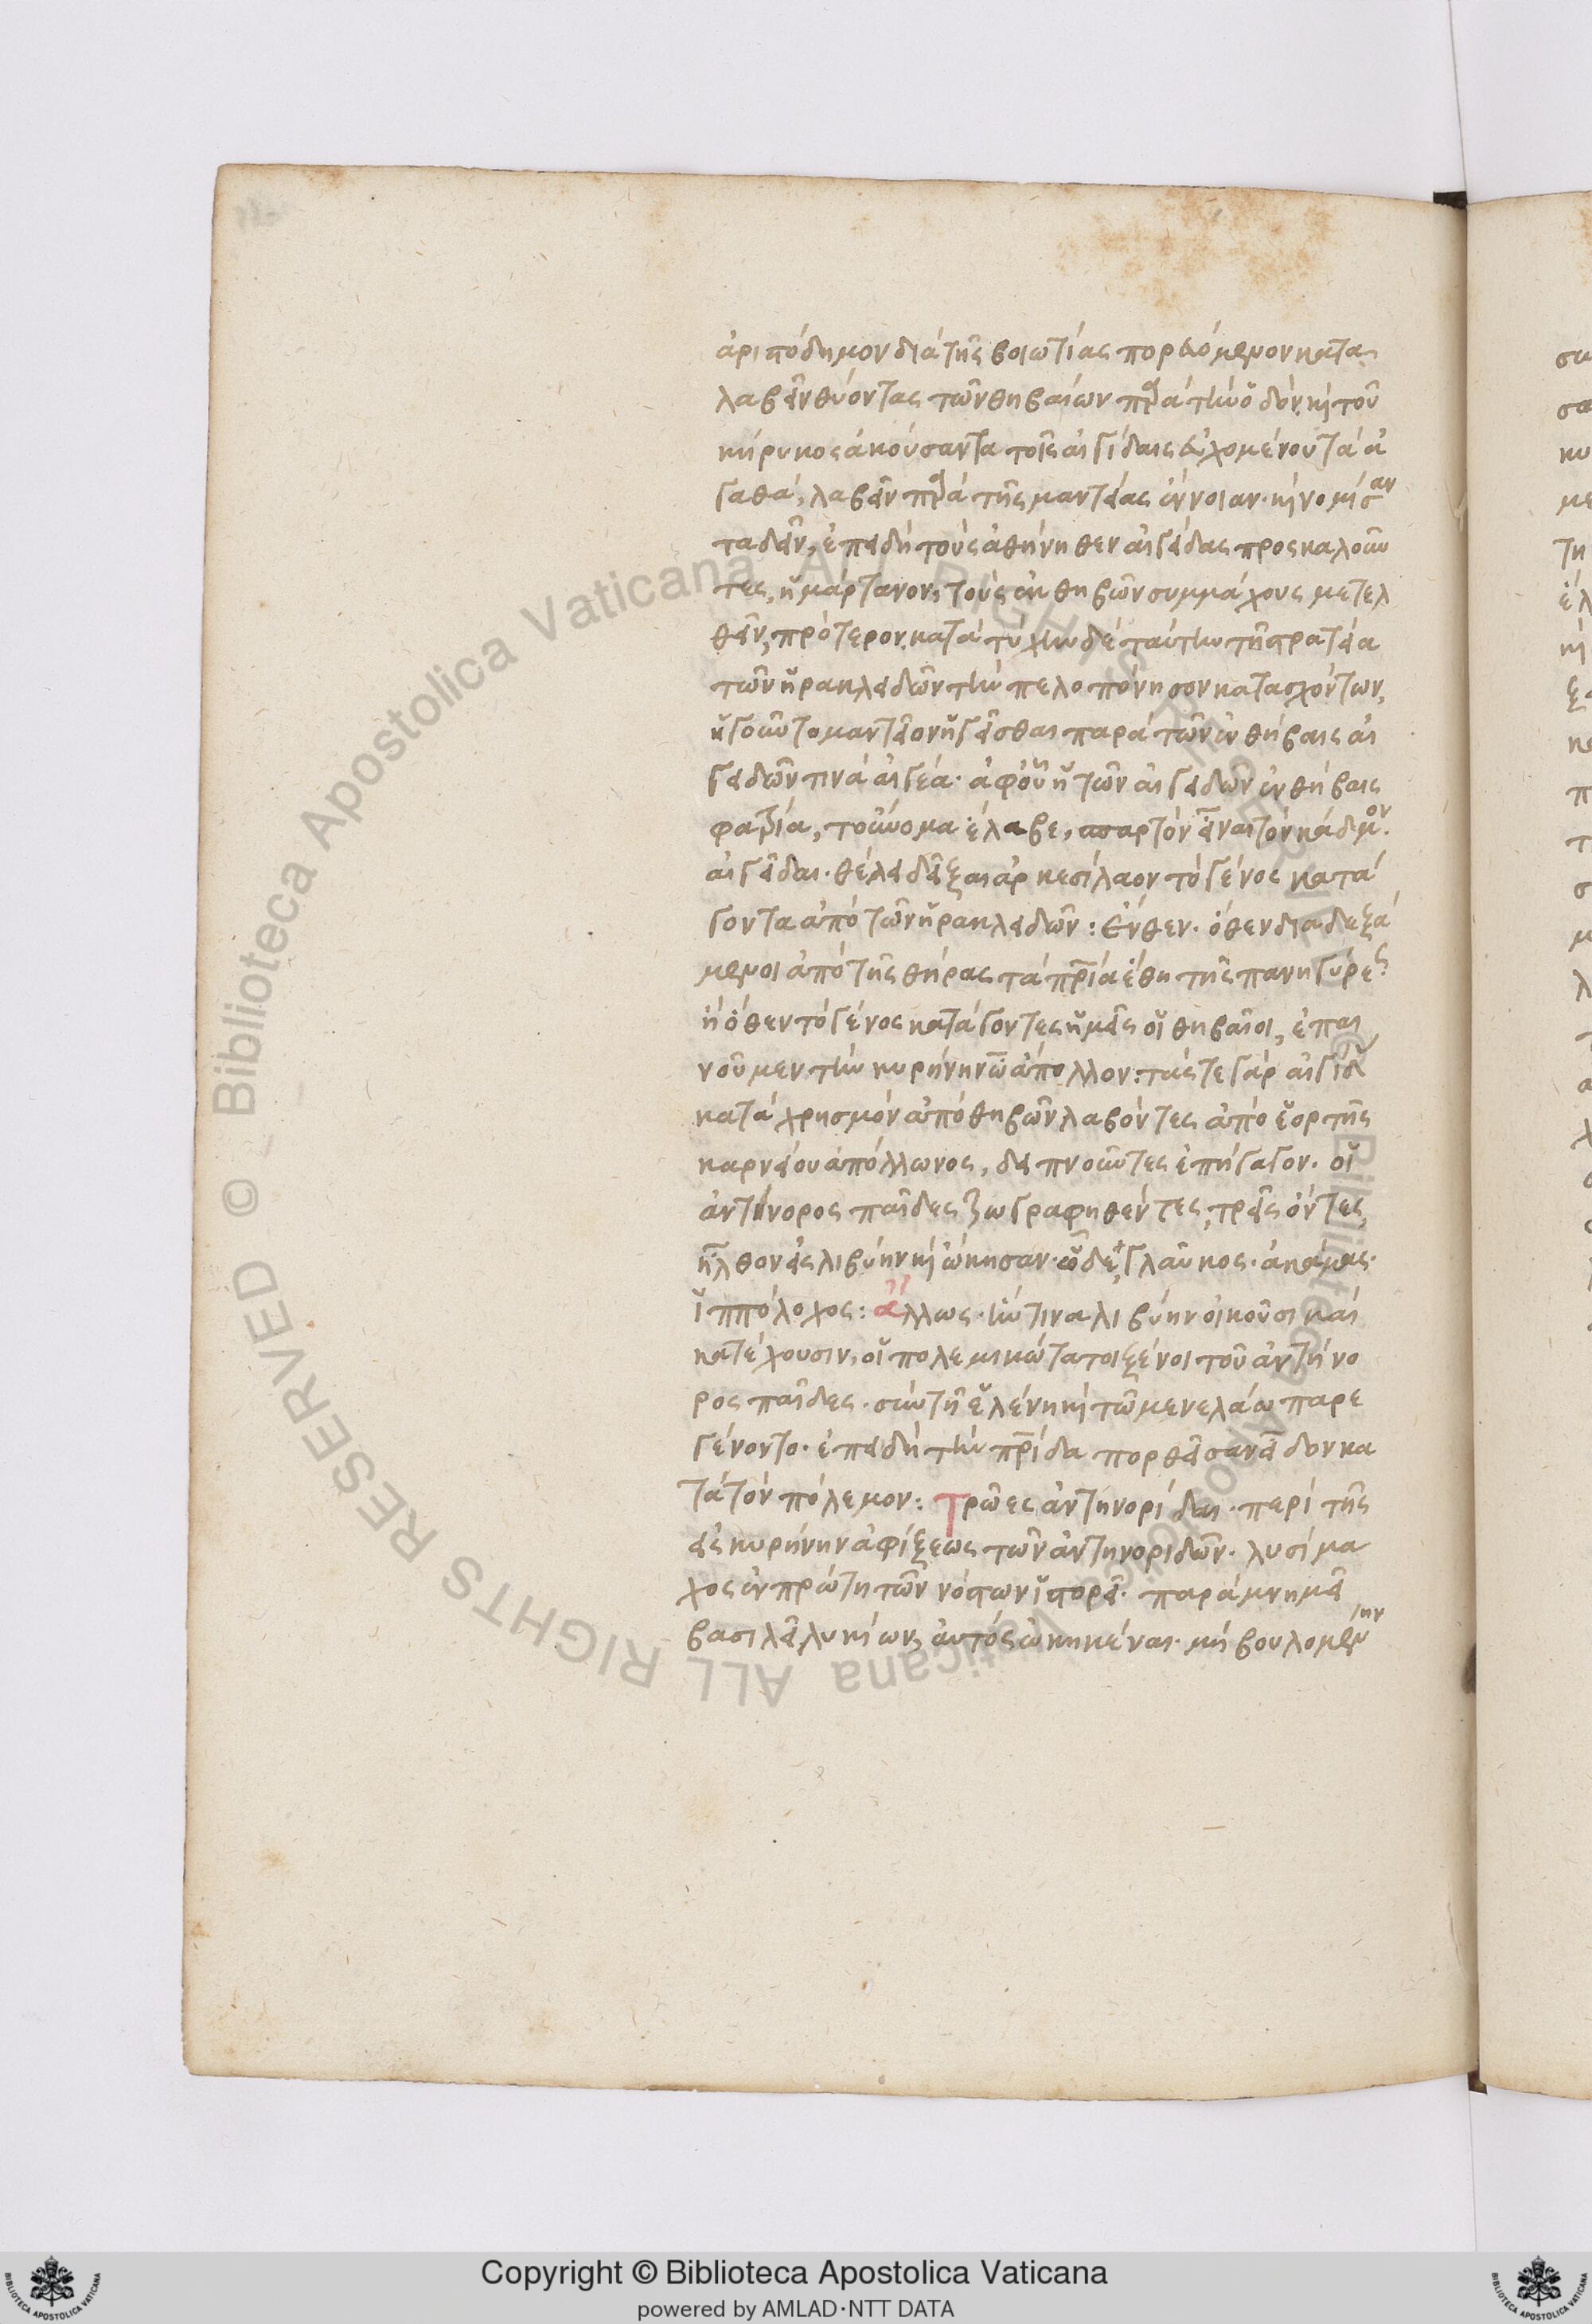 ἀριστόδημον διὰ τῆς βοιωτίας πορευόμενον κατα
λαβεῖν θύοντας τῶν θηβαίων παρὰ τὴν ὁδόν. καὶ τοῦ
κήρυκος ἀκούσαντα τοῖς αἰγίδαις εὐχομένου τὰ ἀ
γαθά, λαβεῖν παρὰ τῆς μαντείας ἔννοιαν. καὶ νομίσαν
τα δεῖν, ἐπειδὴ τοὺς ἀθήνηθεν αἰγείδας προσκαλοῦν
τες, ἡμάρτανον, τοὺς ἐκ θηβῶν συμμάχους μετελ
θεῖν, πρότερον. κατὰ τύχην δὲ ταύτην τῇ στρατεία
τῶν ἡρακλειδῶν τὴν πελοπόνησον κατασχόντων,
ἡγοῦντο μαντεῖον ἡγεῖσθαι παρὰ τῶν ἐν θήβαις αἰ
γειδῶν τινὰ αἰγέα. ἀφ' οὗ ἡ τῶν αἰγειδῶν ἐν θήβαις
φατρία, τοὔνομα ἔλαβε, σπαρτὸν εἶναι τὸν κάδμον.
αἰγεῖδαι. θέλει δεῖξαι ἀρκεσίλαον τὸ γένος κατά
γοντα ἀπὸ τῶν ἡρακλειδῶν: ἔνθεν. ὅθεν διαδεξά
μενοι ἀπὸ τῆς θήρας τὰ πάτρια ἔθη τῆς πανηγύρεως
ἢ ὅθεν τὸ γένος κατάγοντες ἡμεῖς οἱ θηβαῖοι, ἐπαι
νοῦμεν τὴν κυρήνην ὦ ἄπολλον: τάς τε γὰρ αἰγίδ
κατὰ χρησμὸν ἀπὸ θηβῶν λαβόντες ἀπὸ ἑορτῆς
καρνείου ἀπόλλωνος, δειπνοῦντες ἐπήγαγον. οἱ
ἀντήνορος παῖδες ζωγραφηθέντες, τρεῖς ὄντες,
ἦλθον εἰς λιβύην καὶ ᾤκησαν. ὧδε, γλαῦκος. ἀκάμας.
ἱππόλοχος: ἄλλως. ἥντινα λιβύην οἰκοῦσι καὶ
κατέχουσιν, οἱ πολεμικώτατοι ξένοι τοῦ ἀντήνο
ρος παῖδες. σὺν τῇ ἑλένῃ καὶ τῶ μενελάω παρε
γένοντο. ἐπειδὴ τὴν πατρίδα πορθεῖσαν εἶδον κα
τὰ τὸν πόλεμον: Τρῶες ἀντηνορίδαι. περὶ τῆς
εἰς κυρήνην ἀφίξεως τῶν ἀντηνοριδῶν. λυσίμα
χος ἐν πρώτη τῶν νόστων ἱστορεῖ. παρὰ μνημεῖ
βασιλεῖ λυκίων, αὐτὸς ᾠκηκέναι. μὴ βουλομένην